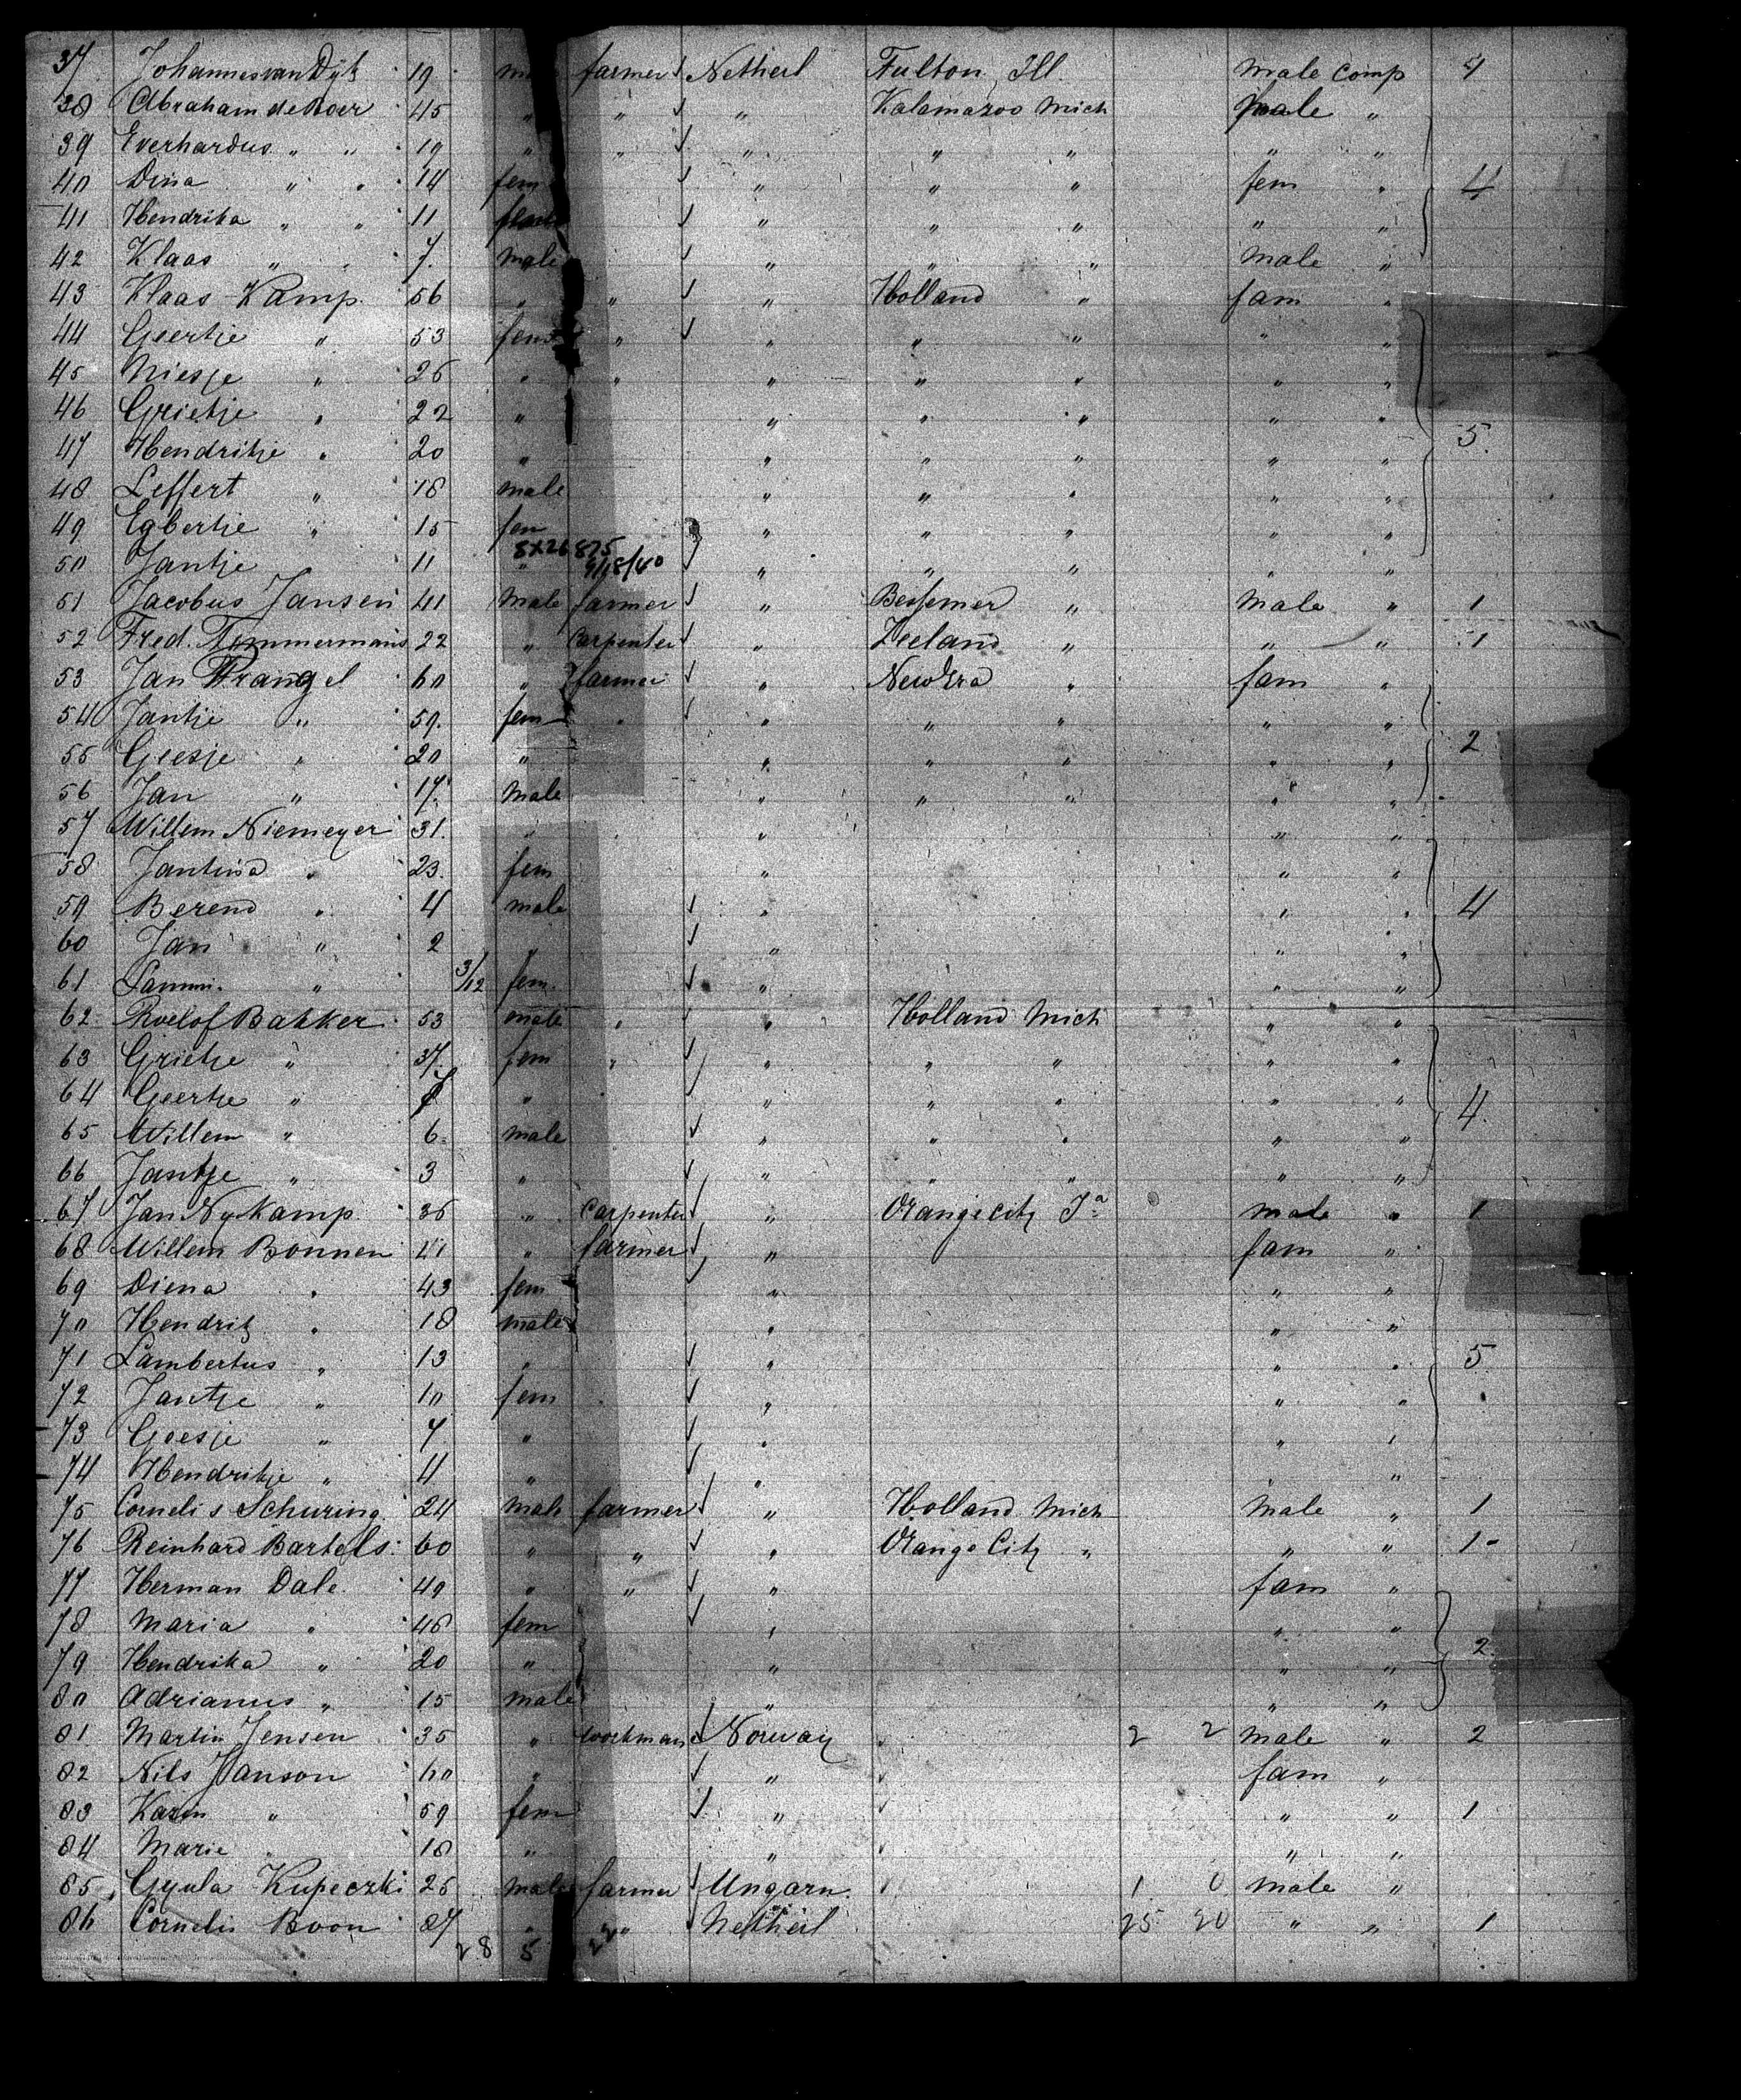 37 Johannes van Dyk 19 m farmer Netherl Fulton Ill. male comp 1
38 Abraham de Boer 45 " " " Kalamazoo Mich male "
39 Everhardus " " 19 " " " " " " "
40 Dina " " 14 fem " " " fem " 4
41 Hendrika " " 11 " " " " "
42 Klaas " " 7. male " " " male "
43 Klaas Kamp. 56 " " " Holland " fam "
44 Geertje " 53 fem " " " " " "
45 Niesje " 26 " " " " " " "
46 Grietje " 22 " " " " " "
47 Hendrikje " 20 " " " " " " 5.
48 Leffert " 18 male " " " " "
49 Egbertje " 15 fem " " " " "
8x26875
50 Jantje 11 " 9/18/40 " " " " "
51 Jacobus Jansen 41 male farmer " Bessemer " male " 1
52 Fred. Timmermans 22 " carpenter " Zeeland " " " 1
53 Jan Prangel 60 " farmer " New Era " fam "
54 Jantje " 59. fem " " " " " "
55 Geesje " 20 " " " " " " 2
56 Jan " 17. male " " " " "
57 Willem Niemeyer 31. " " " "
58 Jantina " 23. fem " " "
59 Berend " 4 male " " " 4
60 Jan " 2 " " " "
61 Lammi. " 3/12 fem. " " "
62 Roelof Bakker 53 male " " Holland Mich " "
63 Grietje " 37. fem " " " " " "
64 Geertje " " " " " " " 4.
65 Willem " 6. male " " " " "
66 Jantje " 3 " " " " " "
67 Jan Nykamp. 36 " carpenter " Orange city Ia male " 1
68 Willem Bonnen 41 " farmer " fam "
69 Diena " 43 fem " " "
70 Hendrik " 18 male " " "
71 Lambertus " 13 " " " " 5
72 Jantje " 10 fem " " "
73 Geesje " 7 " " " "
74 Hendrikje " 4 " " "
75 Cornelis Schuring. 24 male farmer " Holland Mich male " 1
76 Reinhard Bartels. 60 " " " Orange City " " " 1 -
77 Herman Dale. 49 " " " fam "
78 Maria " 46 fem " " "
79 Hendrika " 20 " " " " 2.
80 Adrianus " 15 male " " "
81. Martin Jensen 35 " workman Norway 2 2 male " 2
82 Nils Hanson 60 " " fam "
83 Karin " 59 fem " " " 1
84 Marie 18 " " " "
85 Gyula Kupeczki 26 male farmer Ungarn. 1 0 male "
86 Cornelis Boon 27 " " Netherl 25 20 " " 1
28 5 22